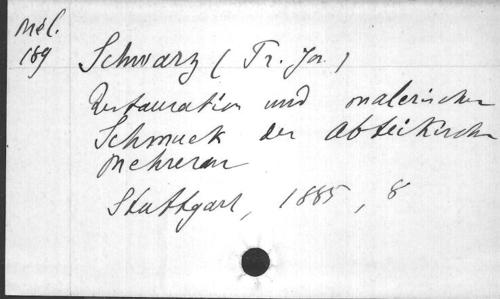 Mél.
189
Schwarz (Fr. Jos.)
Restauration und malerischer
Schmuck der Abteikirche
Mehrerau
Stuttgart, 1885, 8